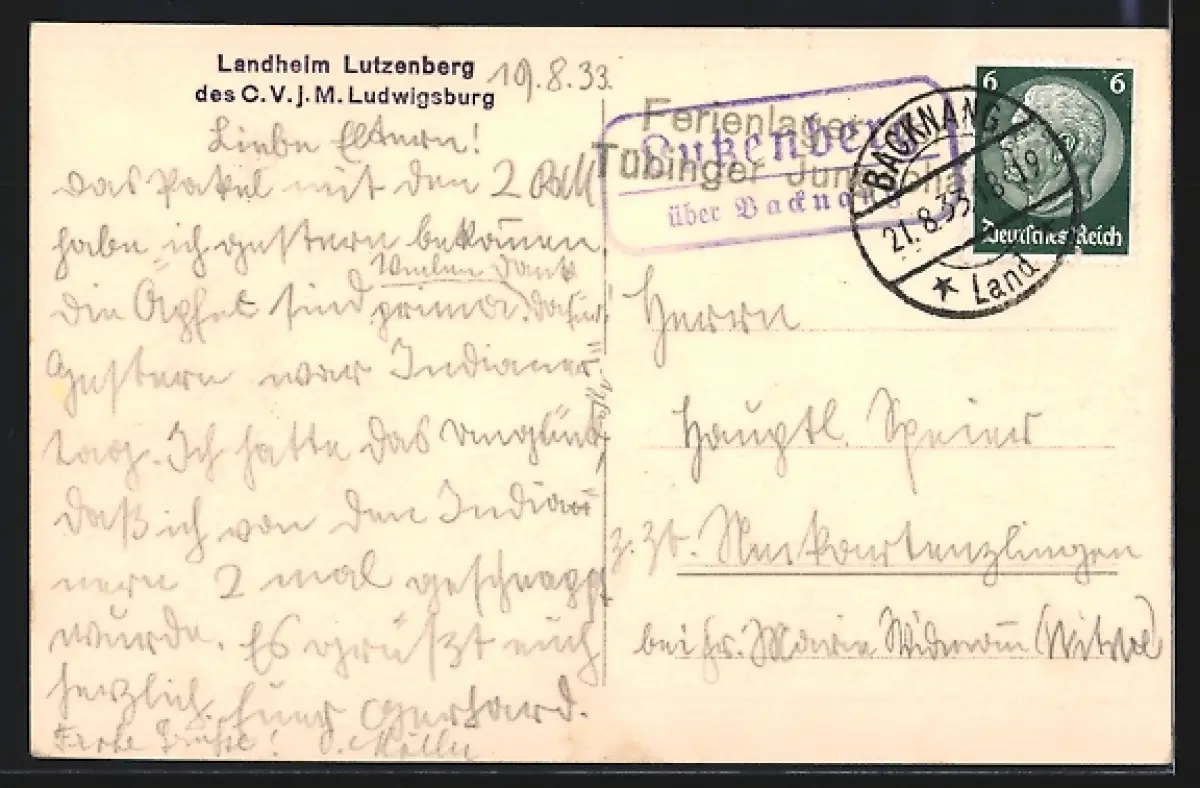 Landheim Lutzenberg
des C.V.j.M. Ludwigsburg
19.8.33.
Liebe Eltern!
Das Paket mit den 2
habe ich gestern bekommen
Vielen Dank
die Äpfel sind prima. dafür
Gestern war Indianer-
tag. Ich hatte das Unglück,
daß ich von den India-
nern 2 mal geschnappt
wurde. Es grüßt euch
herzlich Euer Gerhard.
Frohe Grüße!
Ferienlager
Tübinger
Lutzenberg
über Backnang
BACKNANG
21.8.33. 18-19
★ Land
6 6
Deutsches Reich
Herrn
Hauptl. Speier
z. Zt. Neckartenzlingen
bei Fr. Marie